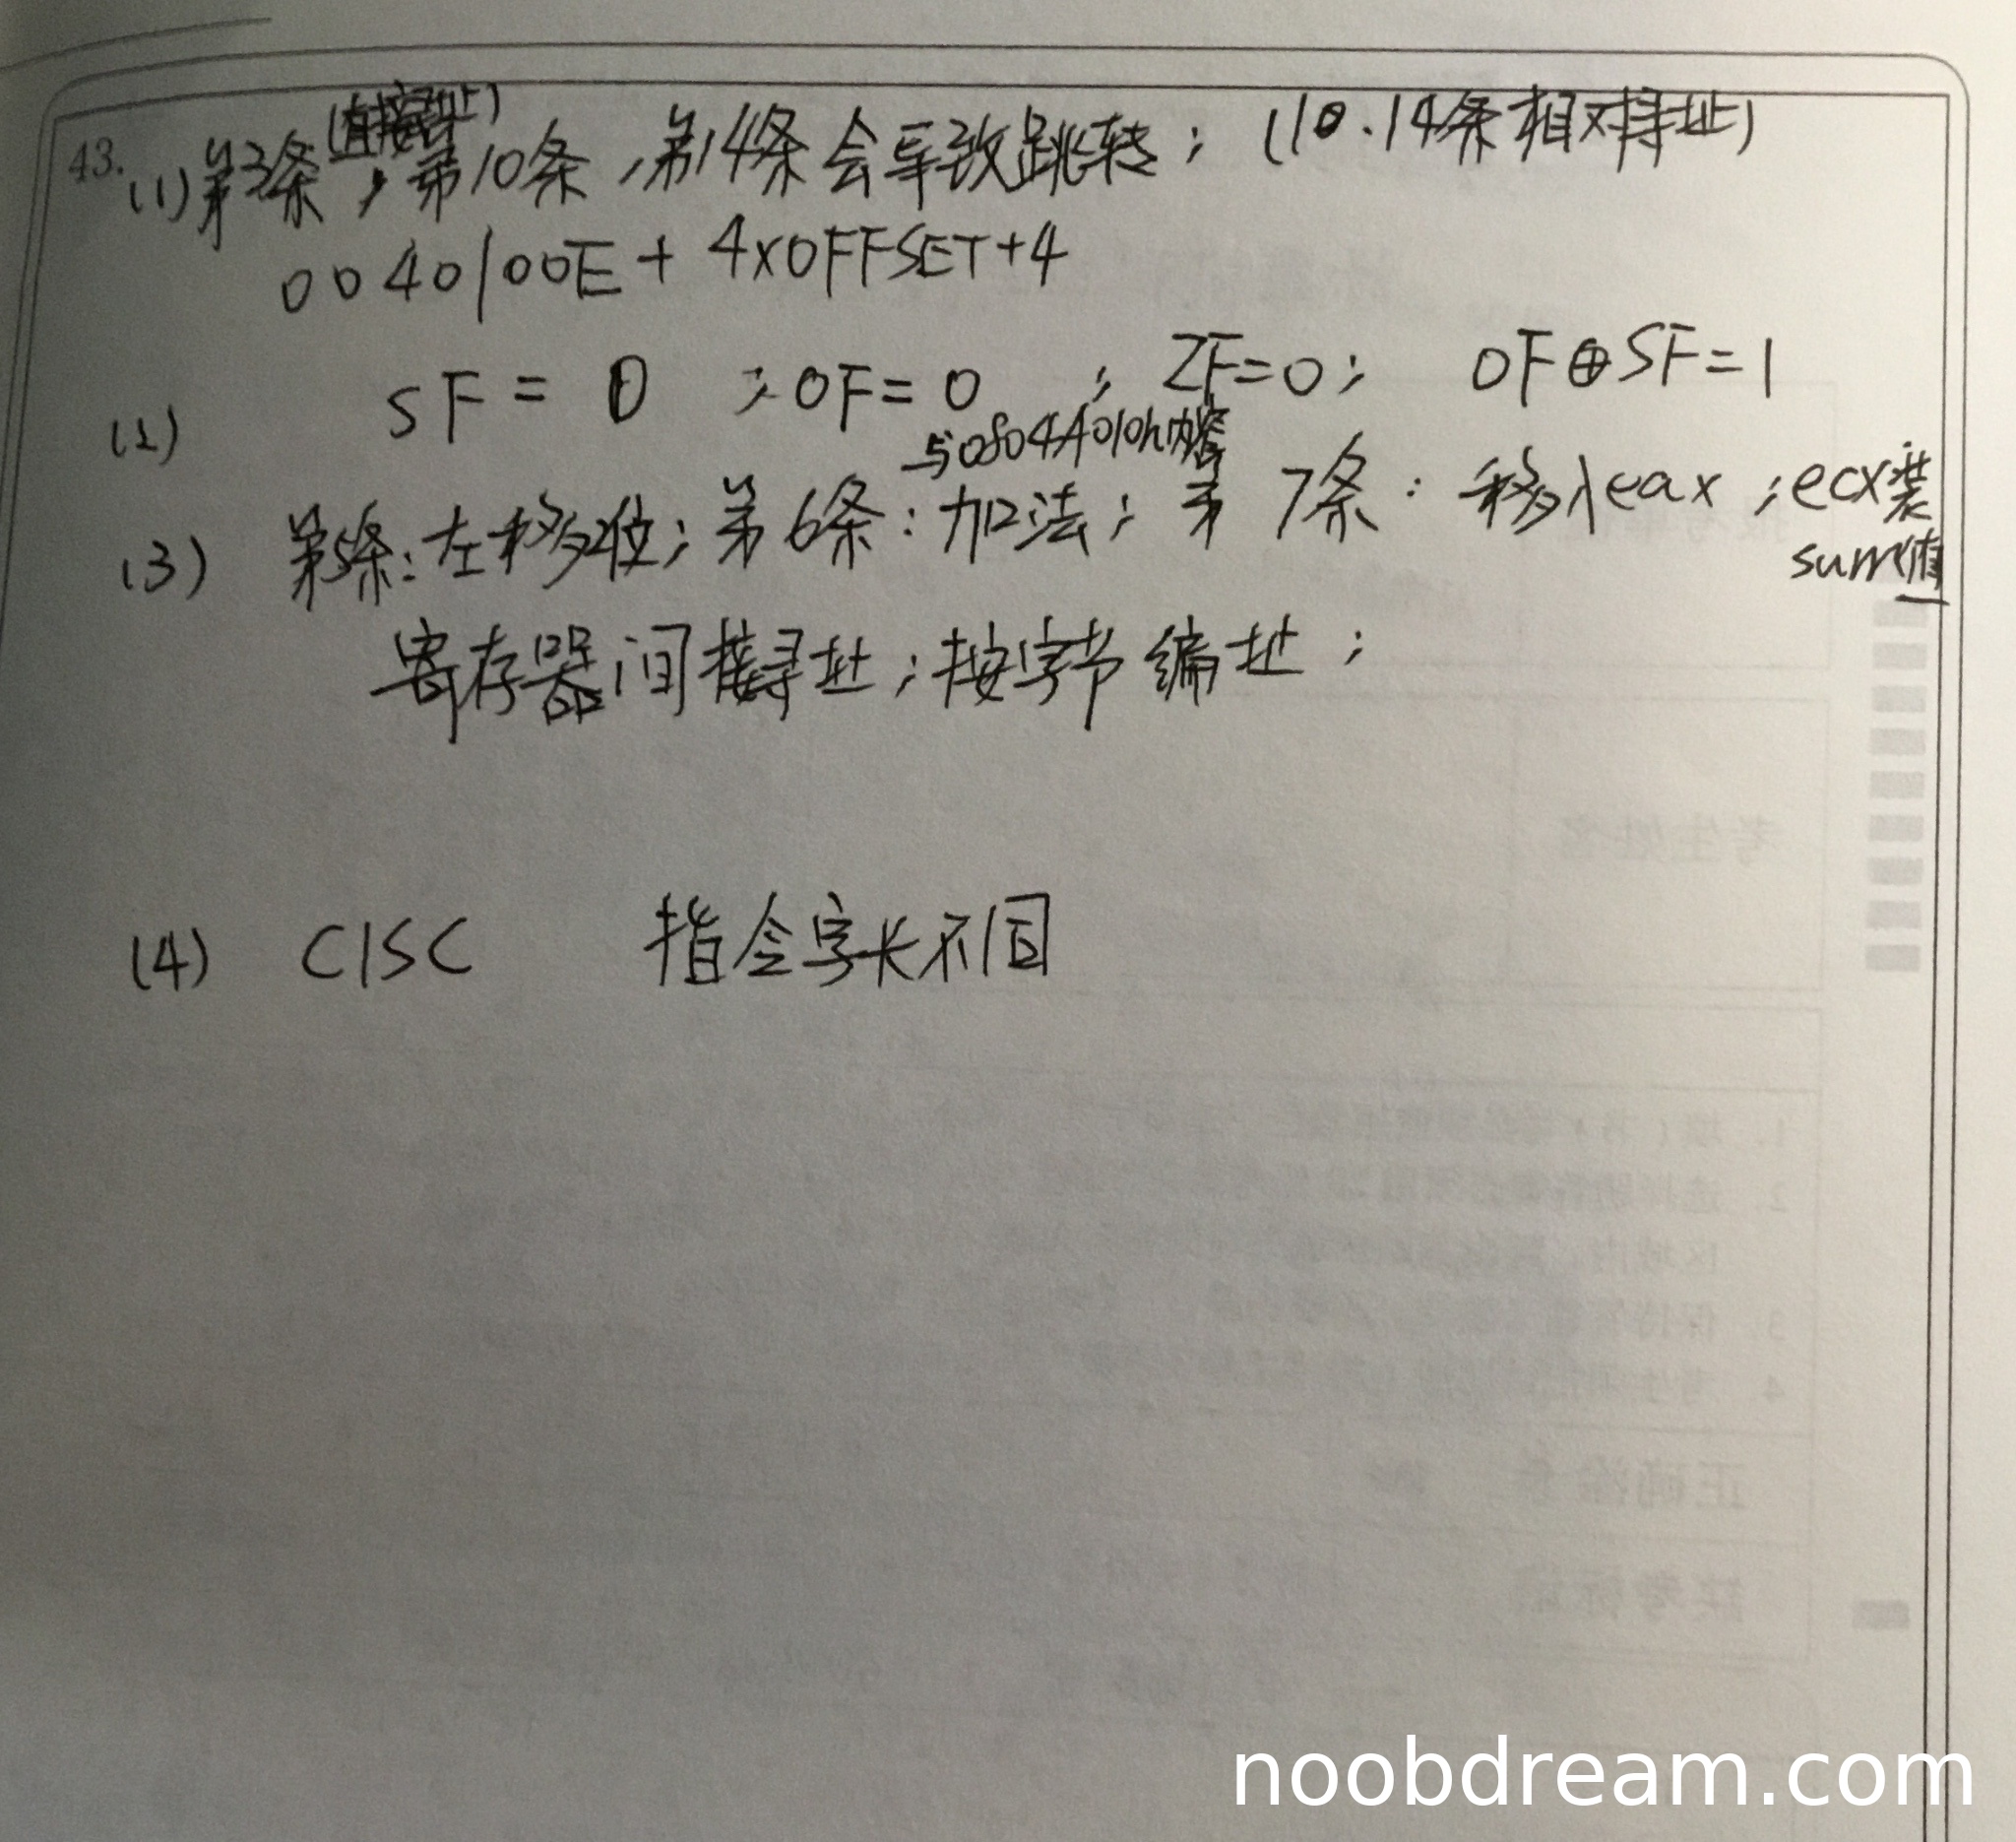 43.
(直接寻址)
(1) 第3条，第10条，第14条会导致跳转；(10.14条相对寻址)
0040100E + 4×OFFSET+4
(2) SF = 0 ；OF = 0 ；ZF=0； OF⊕SF=1
与0804A010h内容
(3) 第5条:左移2位；第6条：加法；第7条：移入eax；ecx装
sum值
寄存器间接寻址；按字节编址；
(4) CISC 指令字长不同
noobdream.com